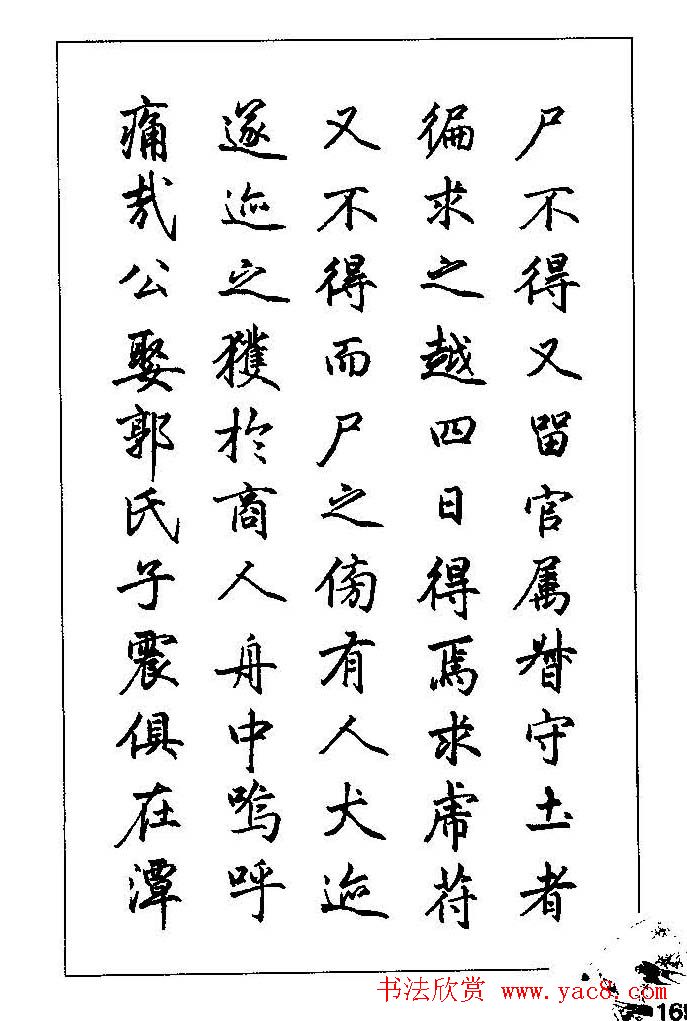 尸不得又留官属督守土者
徧求之越四日得焉求虎苻
又不得而尸之傍有人犬迹
遂迹之獲於商人舟中嗚呼
痛哉公娶郭氏子震俱在潭
书法欣赏 www.yac8.com